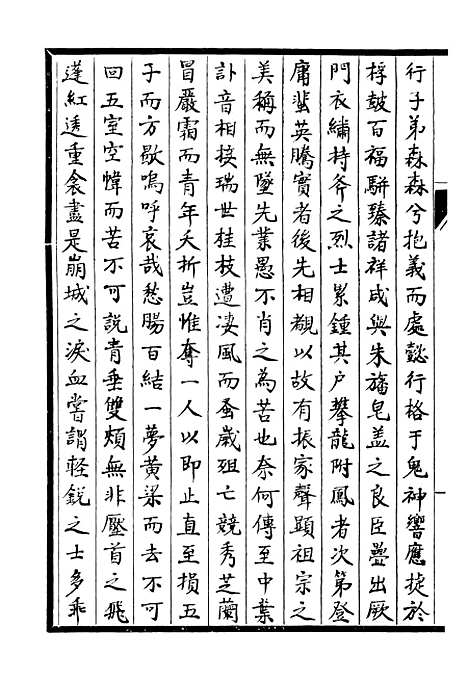 行子弟森森兮抱義而處懿行格于鬼神響應捷於
桴鼓百福駢臻諸祥咸與朱旛皂盖之良臣疊出厥
門衣繡持斧之烈士累鍾其户攀龍附鳳者次第登
庸蜚英騰實者後先相覩以故有振家聲顯祖宗之
美稱而無墜先業愚不肖之為苦也奈何傳至中葉
訃音相接瑞世桂枝遭凄風而蚤歲殂亡競秀芝蘭
冒嚴霜而青年夭折豈惟奪一人以即止直至損五
子而方歇嗚呼哀哉愁腸百結一夢黄粱而去不可
回五室空幃而苦不可説青垂雙頰無非壓首之飛
蓬紅透重衾盡是崩城之淚血嘗謂輕鋭之士多乖